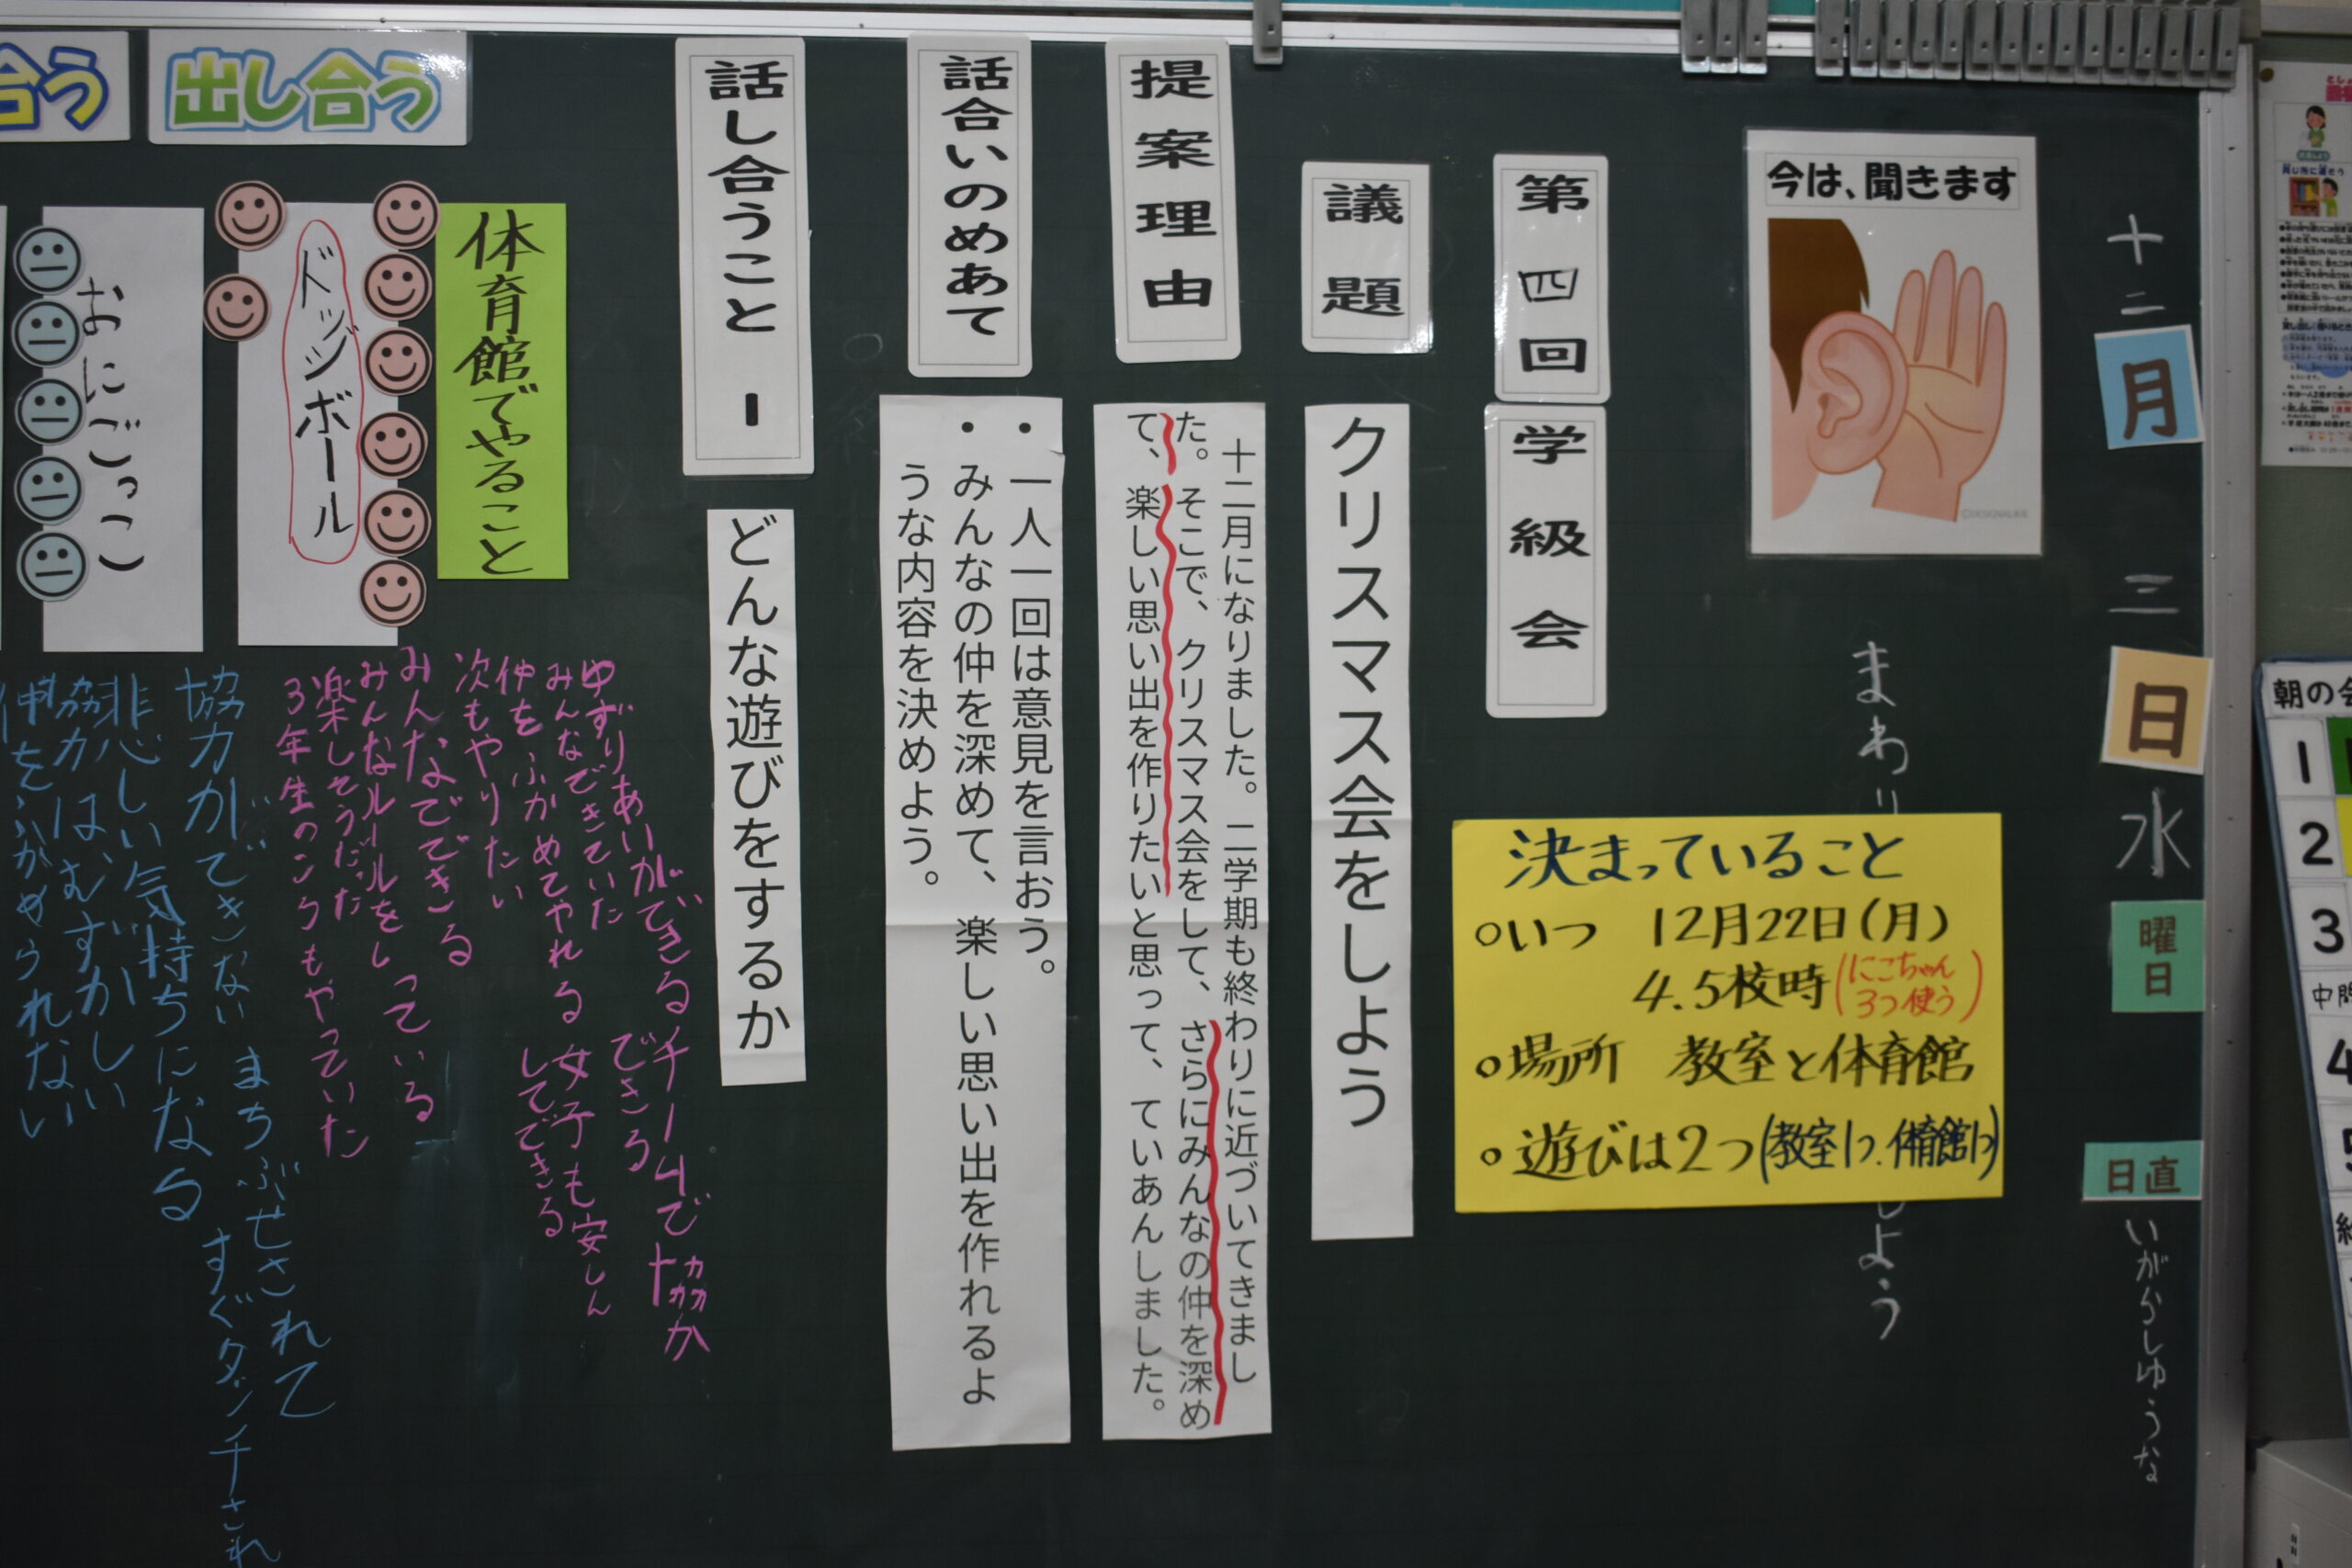 十二月
三日
水曜日
日直
いがらしゆうな
今は、聞きます
まわり
しよう
第四回
学級会
決まっていること
○いつ 12月22日(月)
4.5校時(にこちゃん3つ使う)
○場所 教室と体育館
○遊びは2つ(教室1つ.体育館1つ)
議題
クリスマス会をしよう
提案理由
十二月になりました。二学期も終わりに近づいてきまし
た。そこで、クリスマス会をして、さらにみんなの仲を深め
て、楽しい思い出を作りたいと思って、ていあんしました。
話合いのめあて
・一人一回は意見を言おう。
・みんなの仲を深めて、楽しい思い出を作れるよ
うな内容を決めよう。
話し合うこと 1
どんな遊びをするか
出し合う
合う
体育館でやること
ドッジボール
ゆずりあいができる チームで協力
できる
みんなできていた
仲をふかめてやれる 女子も安しん
してできる
次もやりたい
みんなでできる
みんなルールをしっている
楽しそうだった
3年生のころもやっていた
おにごっこ
協力ができない まちぶせされて
すぐタッチされ
悲しい気持ちになる
協力はむずかしい
仲をふかめられない
朝の会
1
2
3
中間
4
5